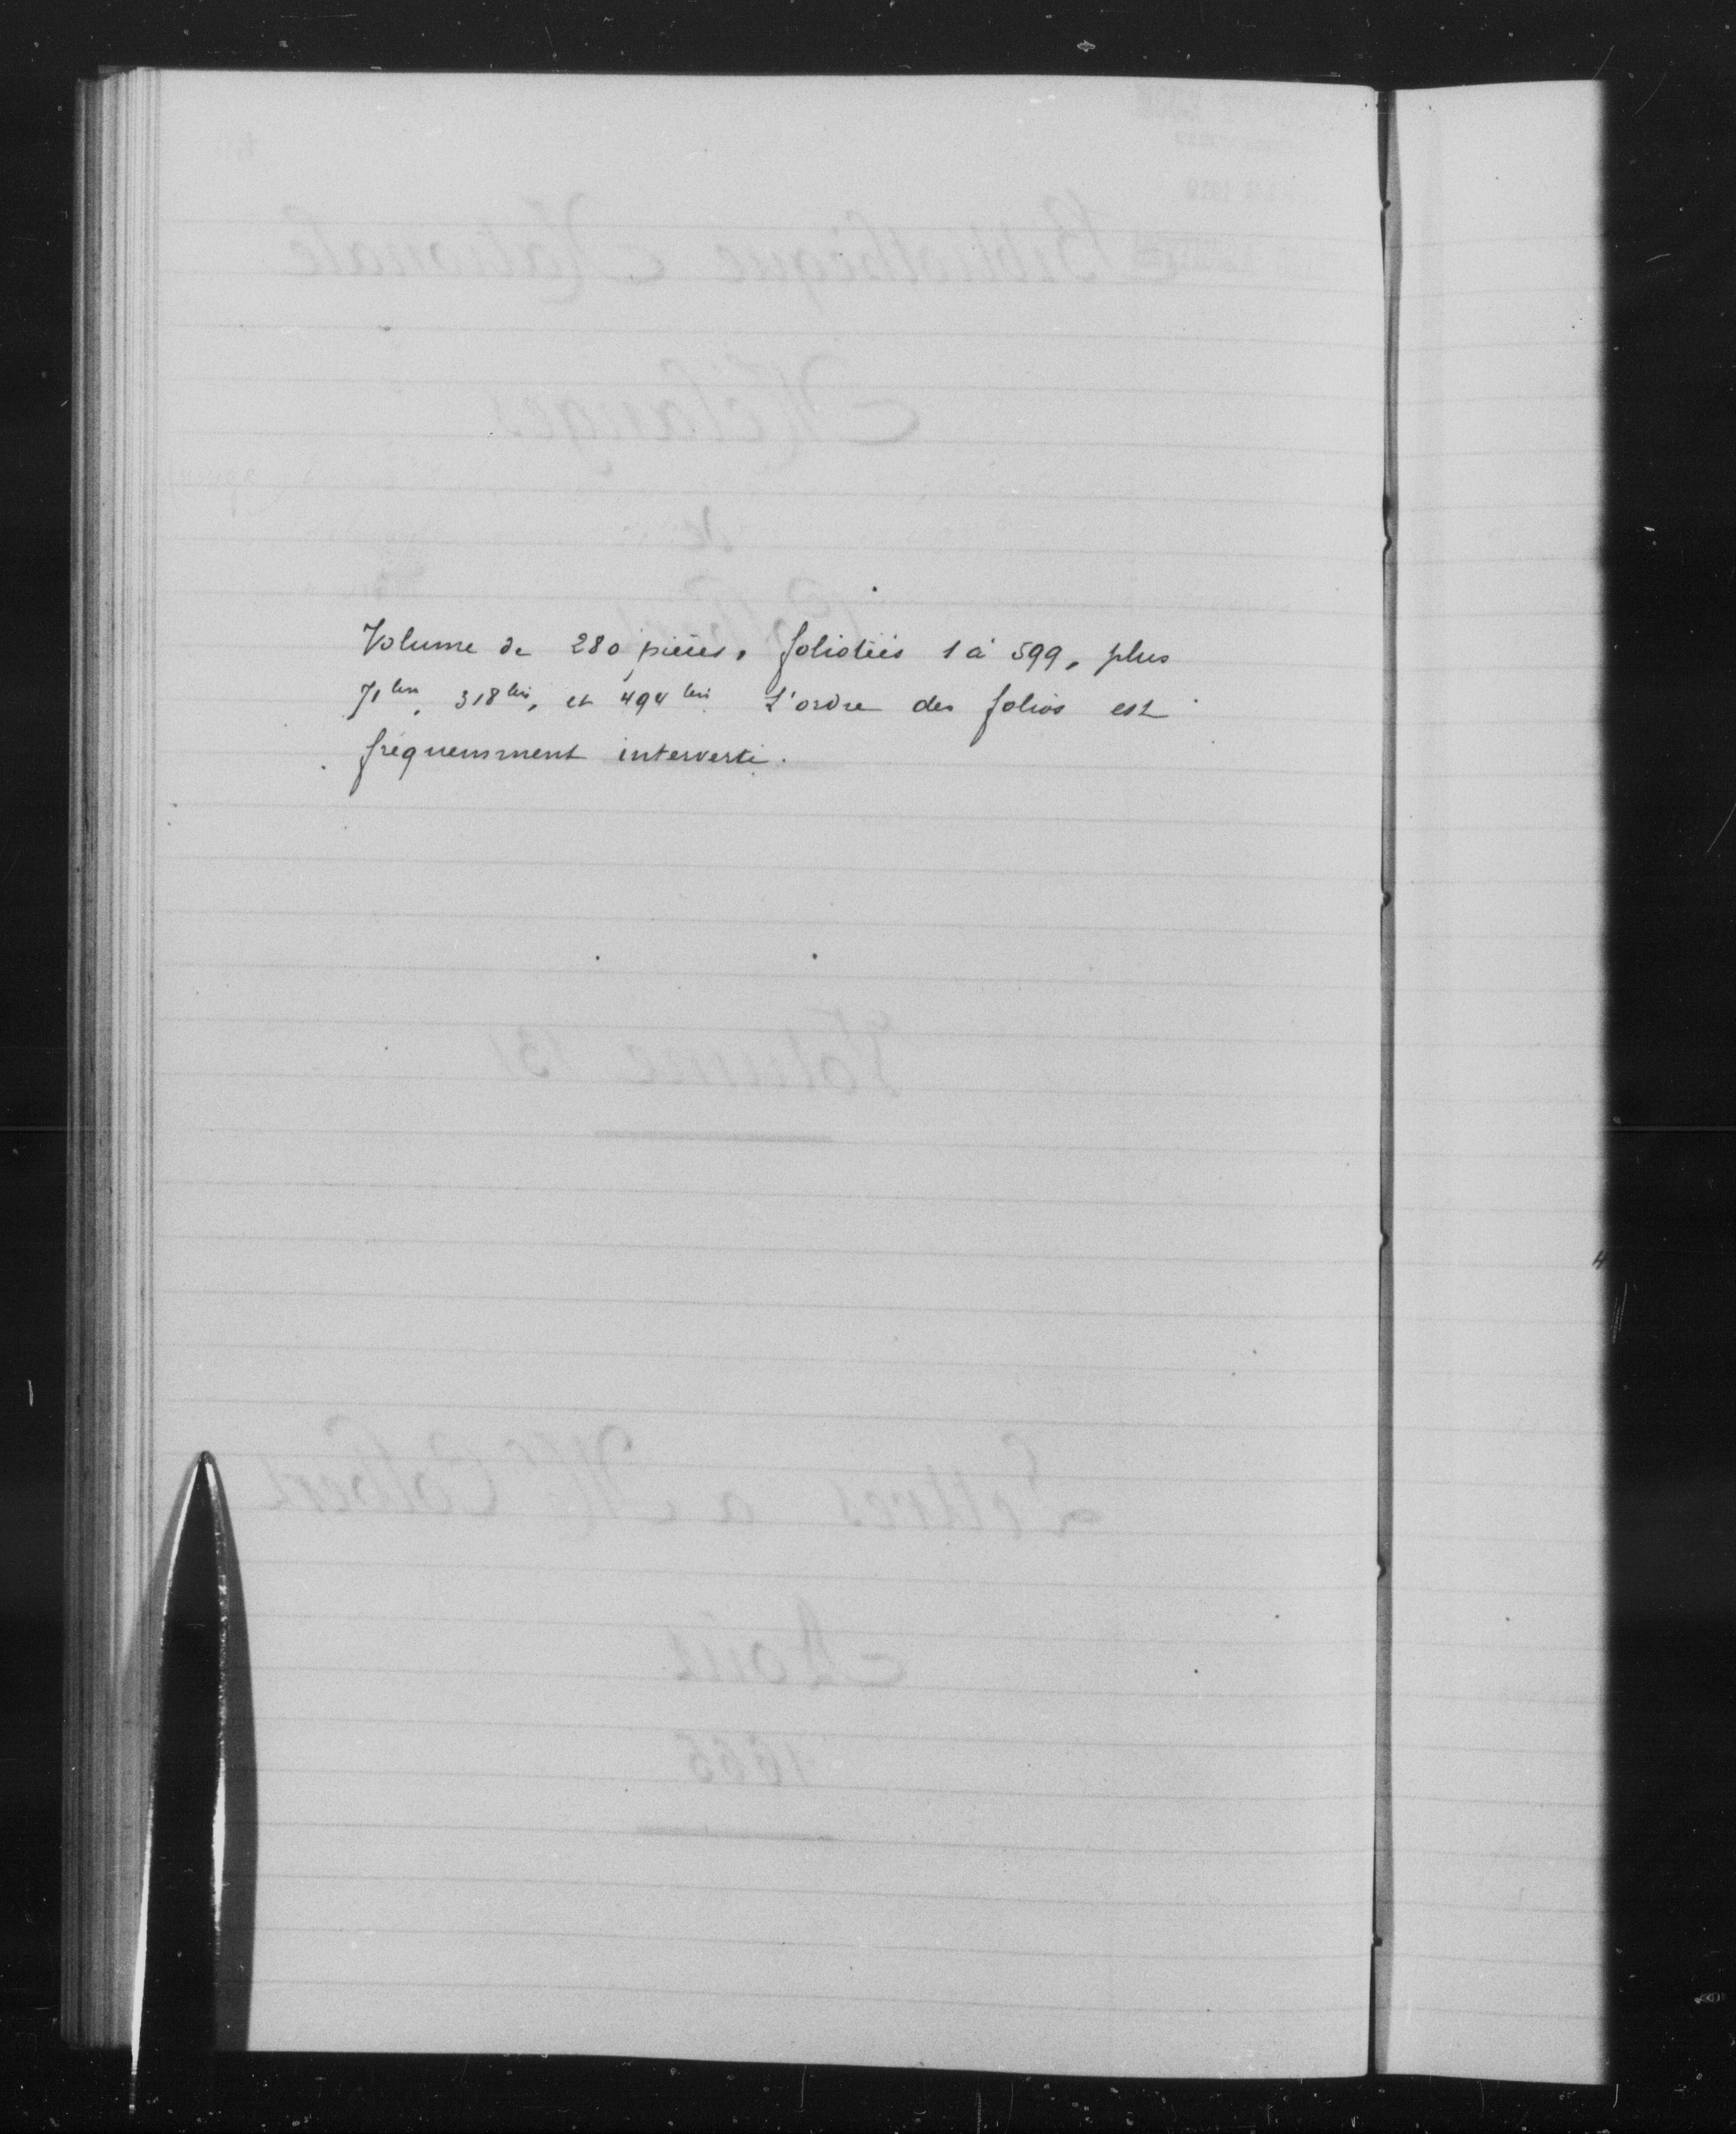 Volume de 280 pièces, foliotées 1 à 599, plus
71 bis, 318 bis, et 494 bis. L'ordre des folios est
fréquemment interverti.